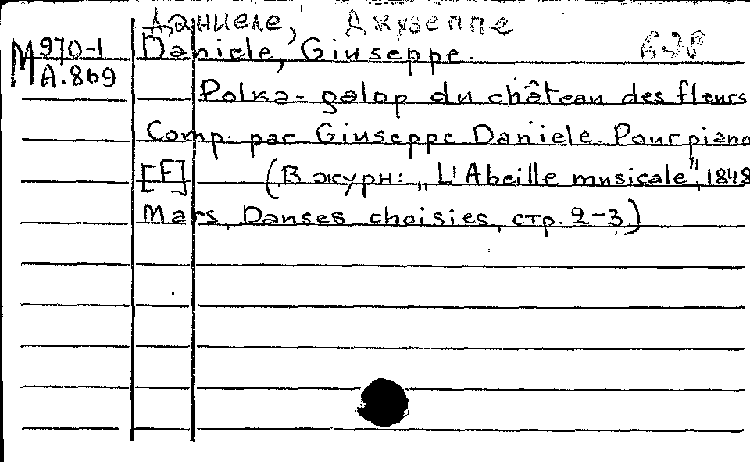 Даниеле, Джузеппе
M 970-1
A.869
Daniele, Giuseppe.
Polka-galop du château des fleurs
Comp. par Giuseppe Daniele. Pour piano
[F] (В журн: „L'Abeille musicale", 1848
Mars, Danses choisies, стр. 2-3)